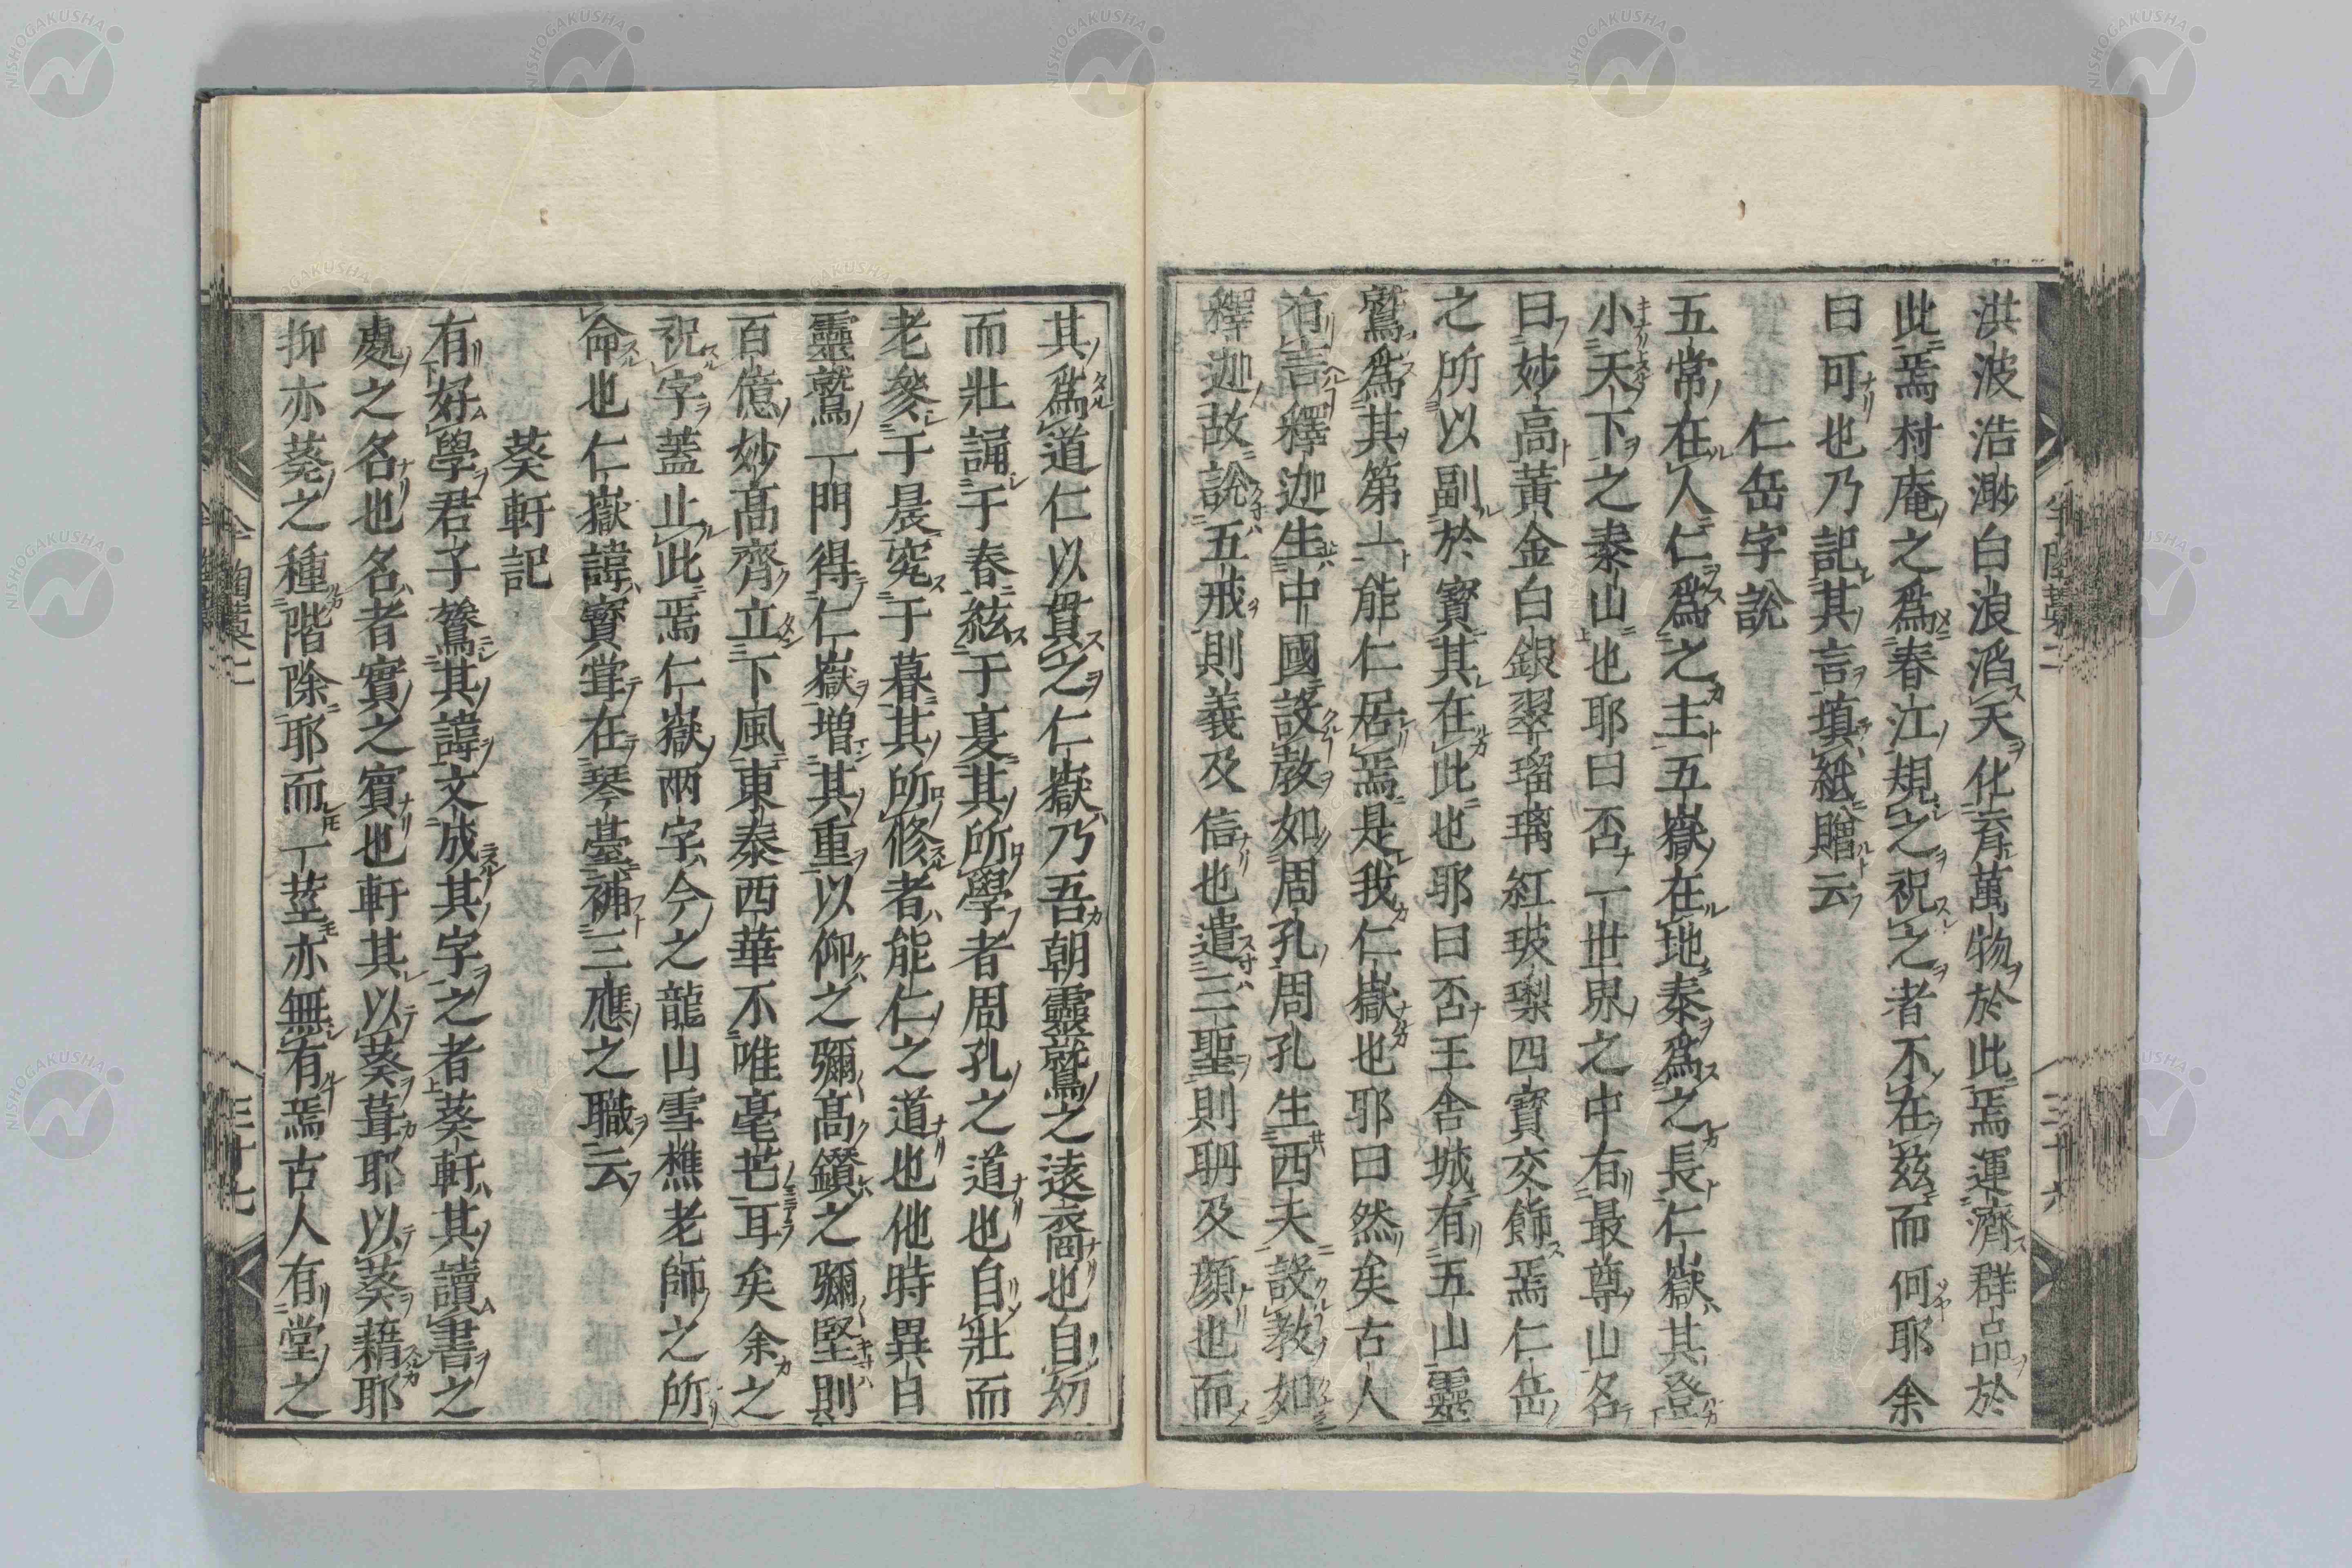 洪波浩渺白浪滔天化育萬物於此焉運濟群品於
此焉村庵之爲春江規之祝之者不在茲而何耶余
曰可也乃記其言填紙贈云
仁岳字說
五常在人仁爲之主五嶽在地泰爲之長仁嶽其登
小天下之泰山也耶曰否一世界之中有最尊山名
曰妙高黃金白銀翠瑠璃紅玻瓈四寶交飾焉仁岳
之所以副於寶其在此也耶曰否王舍城有五山靈
鷲爲其第一能仁居焉是我仁嶽也耶曰然矣古人
有言釋迦生中國設教如周孔周孔生西天設教如
釋迦故說五戒則義及信也遣三聖則聃及顏也而
其爲道仁以貫之仁嶽乃吾朝靈鷲之遠裔也自幼
而壯誦于春絃于夏其所學者周孔之道也自壯而
老參于晨究于暮其所修者能仁之道也他時異日
靈鷲一門得仁嶽增其重以仰之彌高鑽之彌堅則
百億妙高齊立下風東泰西華不唯毫芒耳矣余之
祝字蓋止此焉仁嶽兩字今之龍山雪樵老師之所
命也仁嶽諱寶甞在琴臺補三應之職云
葵軒記
有好學君子鶱其諱文成其字之者葵軒其讀書之
處之名也名者實之賓也軒其以葵葺耶以葵藉耶
抑亦葵之種階除耶而一莖亦無有焉古人有堂之
三十六
三十七